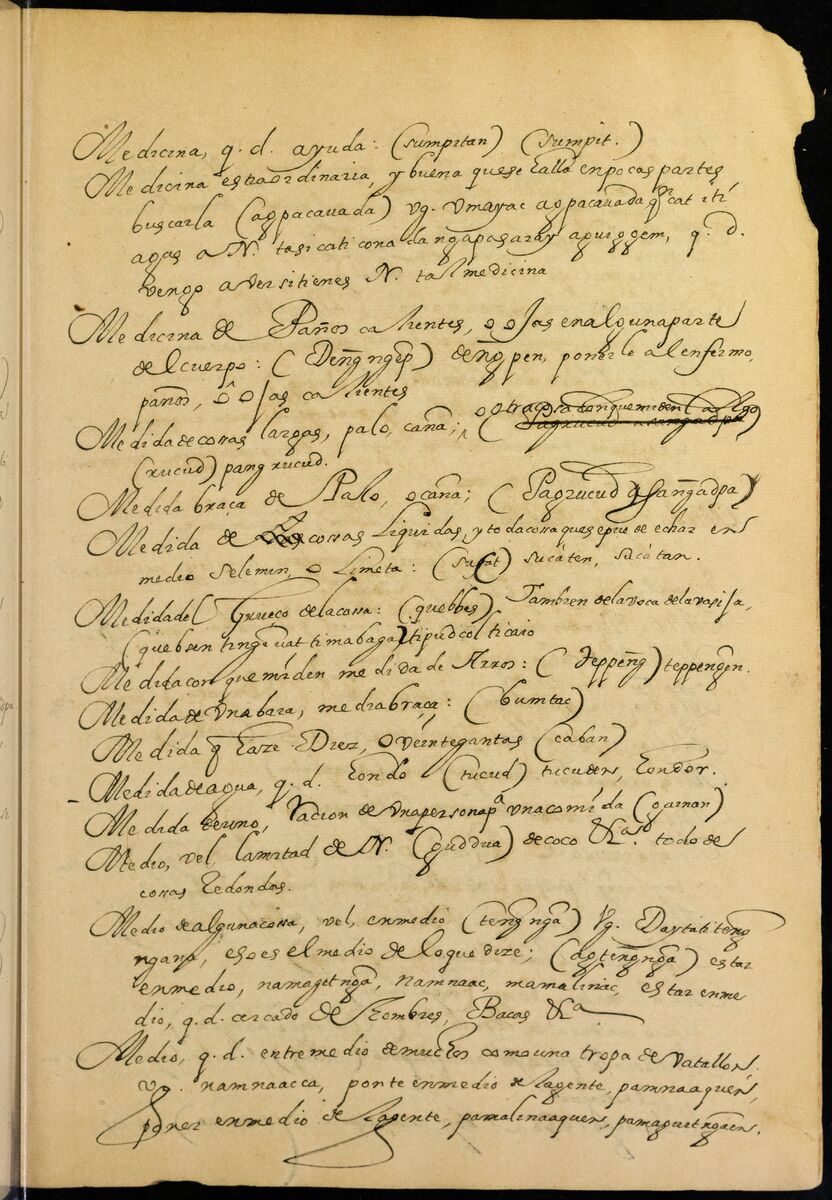 Medicina, q. d. ayuda: (sumpitan) (sumpit.)
Medicina estraordinaria, y buena quese halla enpocas partes
buscarla (agpacavada) vg. vmayac agpacavada
agas a N. tasicaticona dangapasaray aguiggem, q. d.
vengo aversitienes N. tal medicina
Medicina de Paños calientes, o ojas enalgunaparte
delcuerpo: (Deng̃ngep) deng̃open, ponerle alenfermo,
paños, o ojas calientes
Medidadecossas largas, palo, caña; o otracossa conquemiden largo
(rucud) pang rucud.
Medida braça de Palo, ocaña; (Pagrucud q̃ sang̃adpa)
Medida de cossas Liquidas, y todacossa quesepuede echar en
medio selemin, o Limeta: (sucat) sucäten, sucätan.
Medidadel Grueço delacossa: (quebbes) Tambien delavoca delavasija,
(quebsen tingg̃uat timabaga) tipudcolticaio
Medidacon quemiden medida de Arros: (Teppeng̃) teppengen.
Medidade vnabara, mediabraça: (bumtac)
Medida q̃ haze Diez, o veintegantas (caban)
Medidadeagua, q. d. hondo (tucud) tucuden, hondor.
Medida deuno, Racion de vnapersonapᵃ vnacomida (guinan)
Medio, vel, lamitad de N. (guddua) decoco &ᵃ. todo de
cossas Redondas.
Medio dealgunacossa, vel, enmedio (teng̃ng̃a) Vg. Daytati teng̃
ngana, esoes el medio deloque dize; (agteng̃ng̃a) estar
enmedio, namagetng̃a, namnaac, mamalinac, estar enme
dio, q. d. cercado de Hombres, Bacas &ᵃ
Medio, q. d. entremedio demuchos comouna tropa de vatallon.
vg. namnaacca, ponte enmedio delagente, pamnaaquen,
poner enmedio delagente, pamalinaaquen, pamaguetng̃aen.